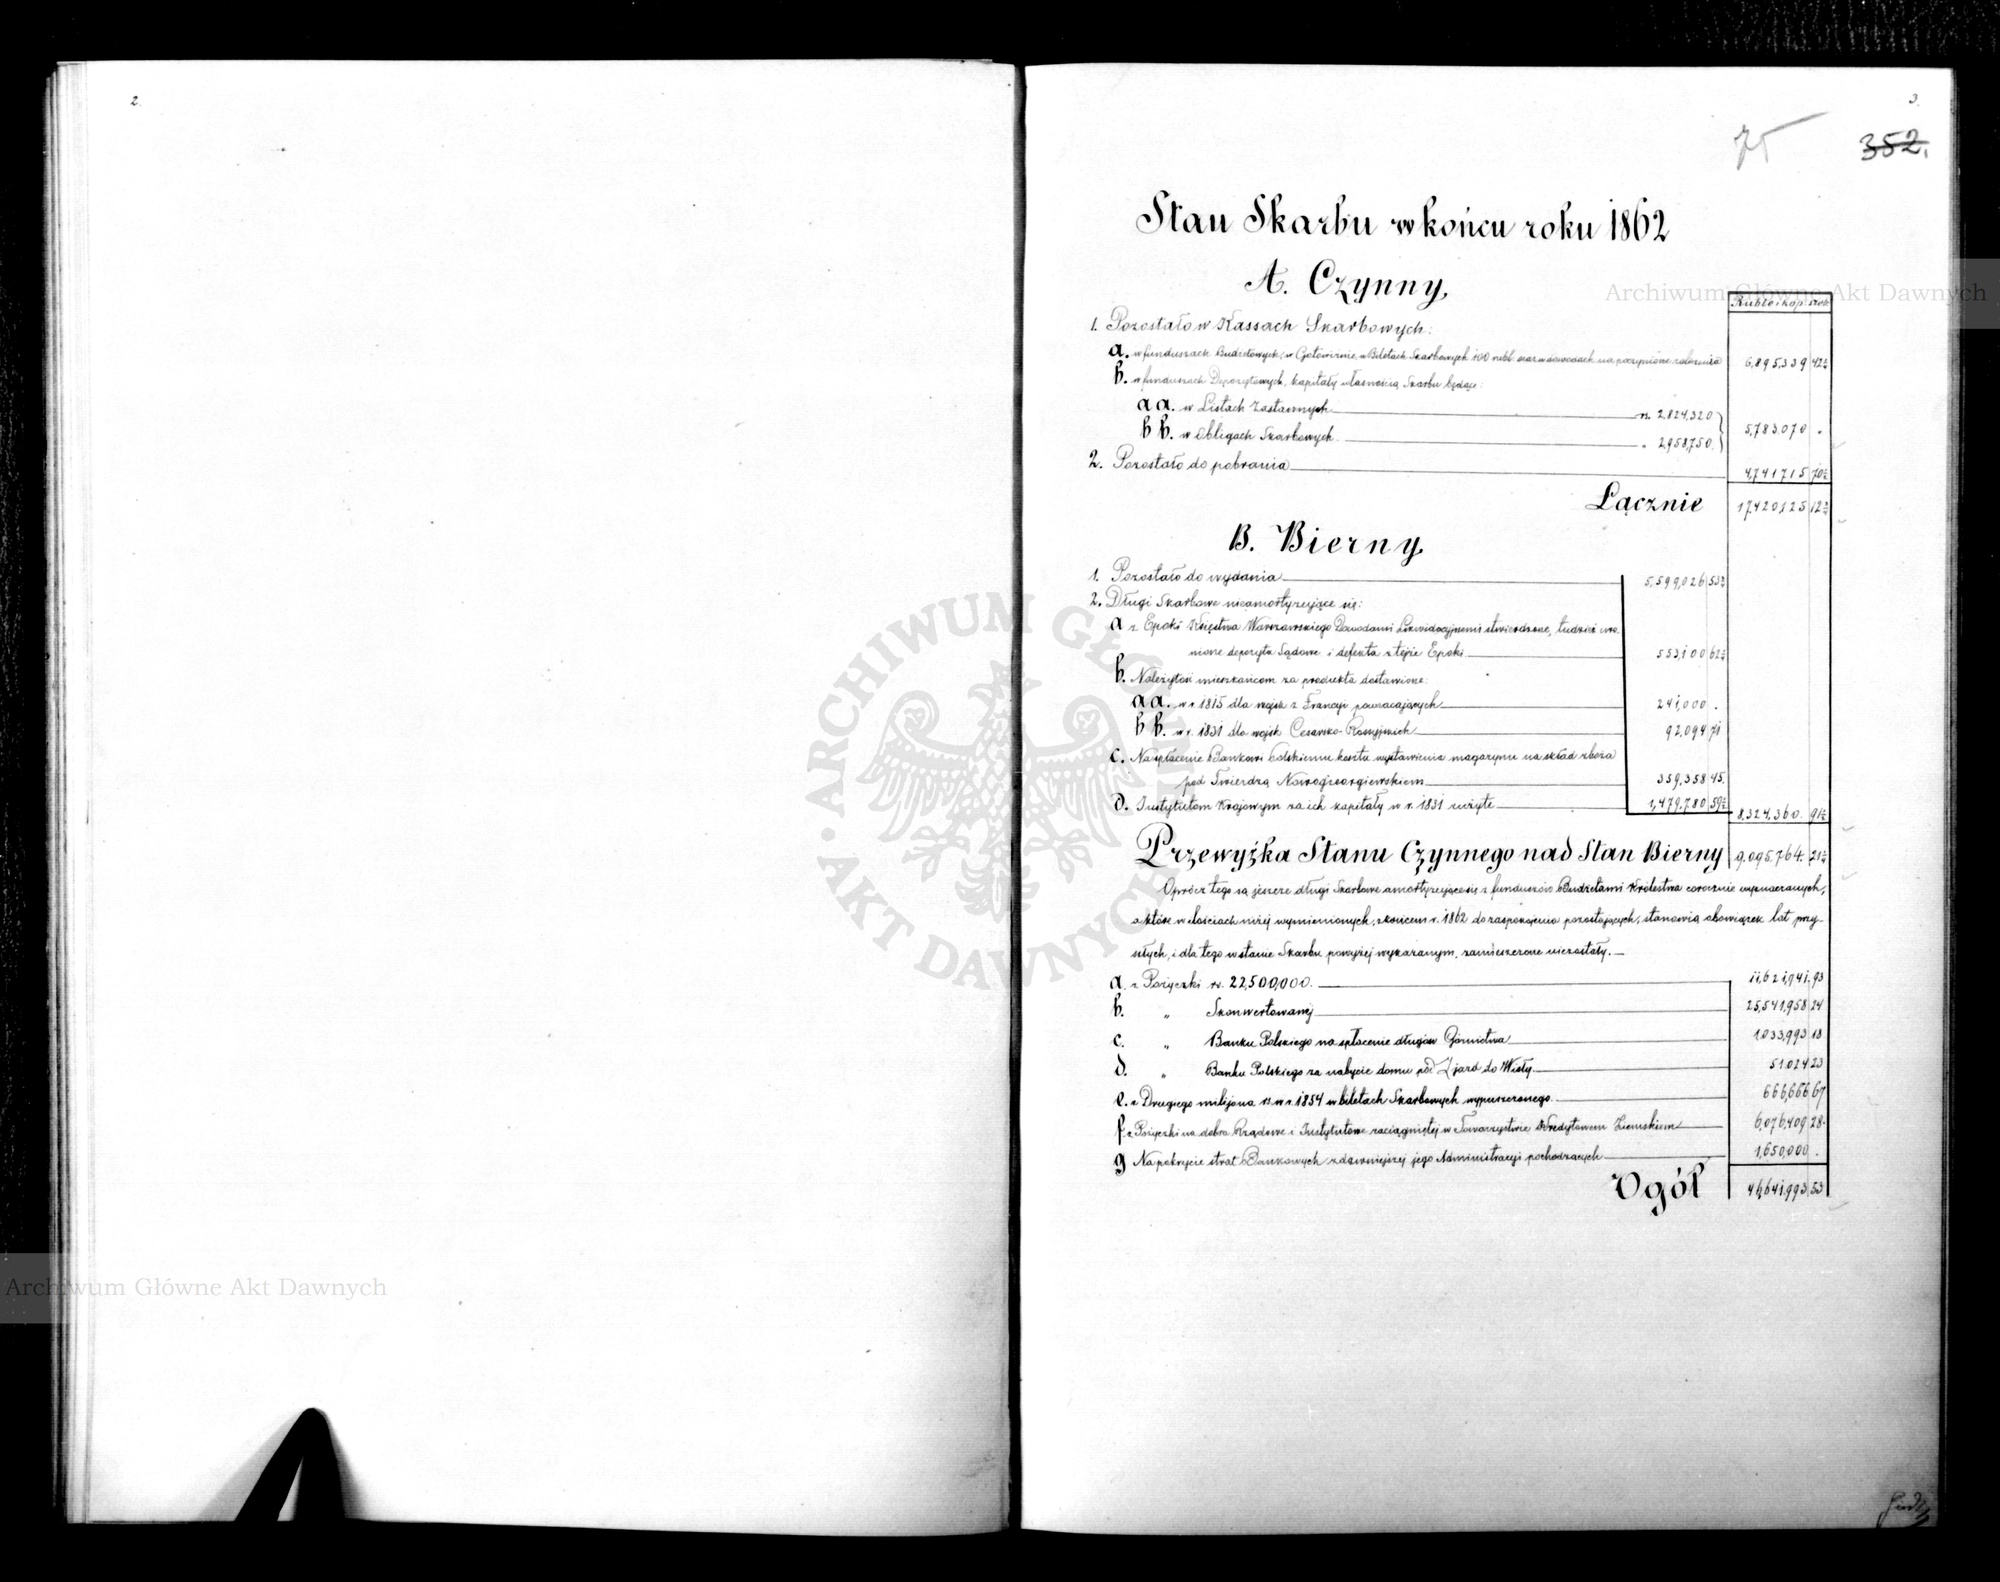 2.
3.
75
352.
Stan Skarbu w końcu roku 1862
A. Czynny.
Ruble i kop. sreb
1. Pozostało w Kassach Skarbowych:
a. w funduszach Budżetowych, w Gotowiźnie, w Biletach Skarbowych 100 rubl. oraz w dowodach na poczynione zaliczenia 6,895,339 42½
b. w funduszach Depozytowych, kapitały własnością Skarbu będące:
aa. w Listach Zastawnych rs. 2,824,320
bb. w Obligach Skarbowych „ 2,958,750. 5,783,070 .
2. Pozostało do pobrania 4,741,715 70½
Łącznie 17,420,125 12
B. Bierny
1. Pozostało do wydania 5,599,026 53
2. Długi Skarbowe nieamortyzujące się:
a z Epoki Księstwa Warszawskiego Dowodami Likwidacyjnemi stwierdzone, tudzież uro-
nione depozyta Sądowe i defekta z tejże Epoki 553,100 62
b. Należytość mieszkańcom za produkta dostawione:
aa. w r. 1815 dla wojsk z Francyi powracających 241,000 .
bb. w r. 1831 dla wojsk Cesarsko-Rossyjskich 92,094 71
c. Na spłacenie Bankowi Polskiemu kosztu wystawienia magazynu na skład zboża
pod Twierdzą Nowogieorgiewskiem 359,358 45.
d. Instytutom Krajowym za ich kapitały w r. 1831 użyte 1,479,780 59
8,324,360. 91
Przewyżka Stanu Czynnego nad Stan Bierny 9,095,764. 21
Oprócz tego są jeszcze długi Skarbowe amortyzujące się z funduszów Budżetami Królestwa corocznie wyznaczanych,
a które w ilościach niżej wymienionych, z końcem r. 1862 do zaspokojenia pozostających, stanowią obowiązek lat przy-
szłych, i dla tego w stanie Skarbu powyżej wykazanym, zamieszczone niezostały.
a. z Pożyczki rs. 22,500,000. 11,621,941. 93
b. „ Skonwertowanej 25,541,958 24
c. „ Banku Polskiego na spłacenie długów Górnictwa 1,033,993 18
d. „ Banku Polskiego za nabycie domu pod Zjazd do Wisły 51,024 23
e. z Drugiego milijona rs. w r. 1854 w biletach Skarbowych wypuszczonego. 666,666 67
f. z Pożyczki na dobra Rządowe i Instytutowe zaciągniętej w Towarzystwie Kredytowem Ziemskiem 6,076,409 28.
g Na pokrycie strat Bankowych z dawniejszej jego Administracyi pochodzących 1,650,000 .
Ogół 46,641,993 53
Archiwum Główne Akt Dawnych
Archiwum Główne Akt Dawnych
ARCHIWUM GŁÓWNE AKT DAWNYCH